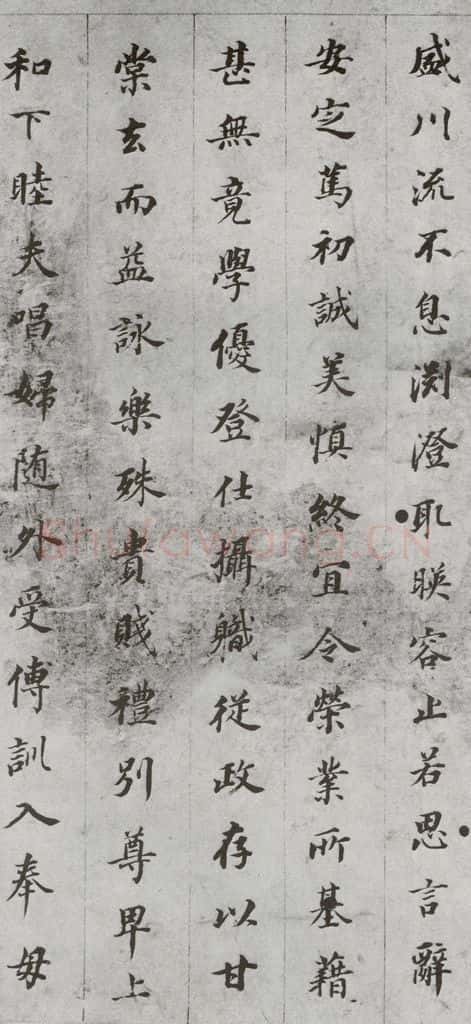 盛川流不息渕澄取暎容止若思言辭
安定篤初誠美慎終宜令榮業所基藉
甚無竟學優登仕攝職從政存以甘
棠去而益詠樂殊貴賤禮別尊卑上
和下睦夫唱婦随外受傅訓入奉母
Shufawang.CN